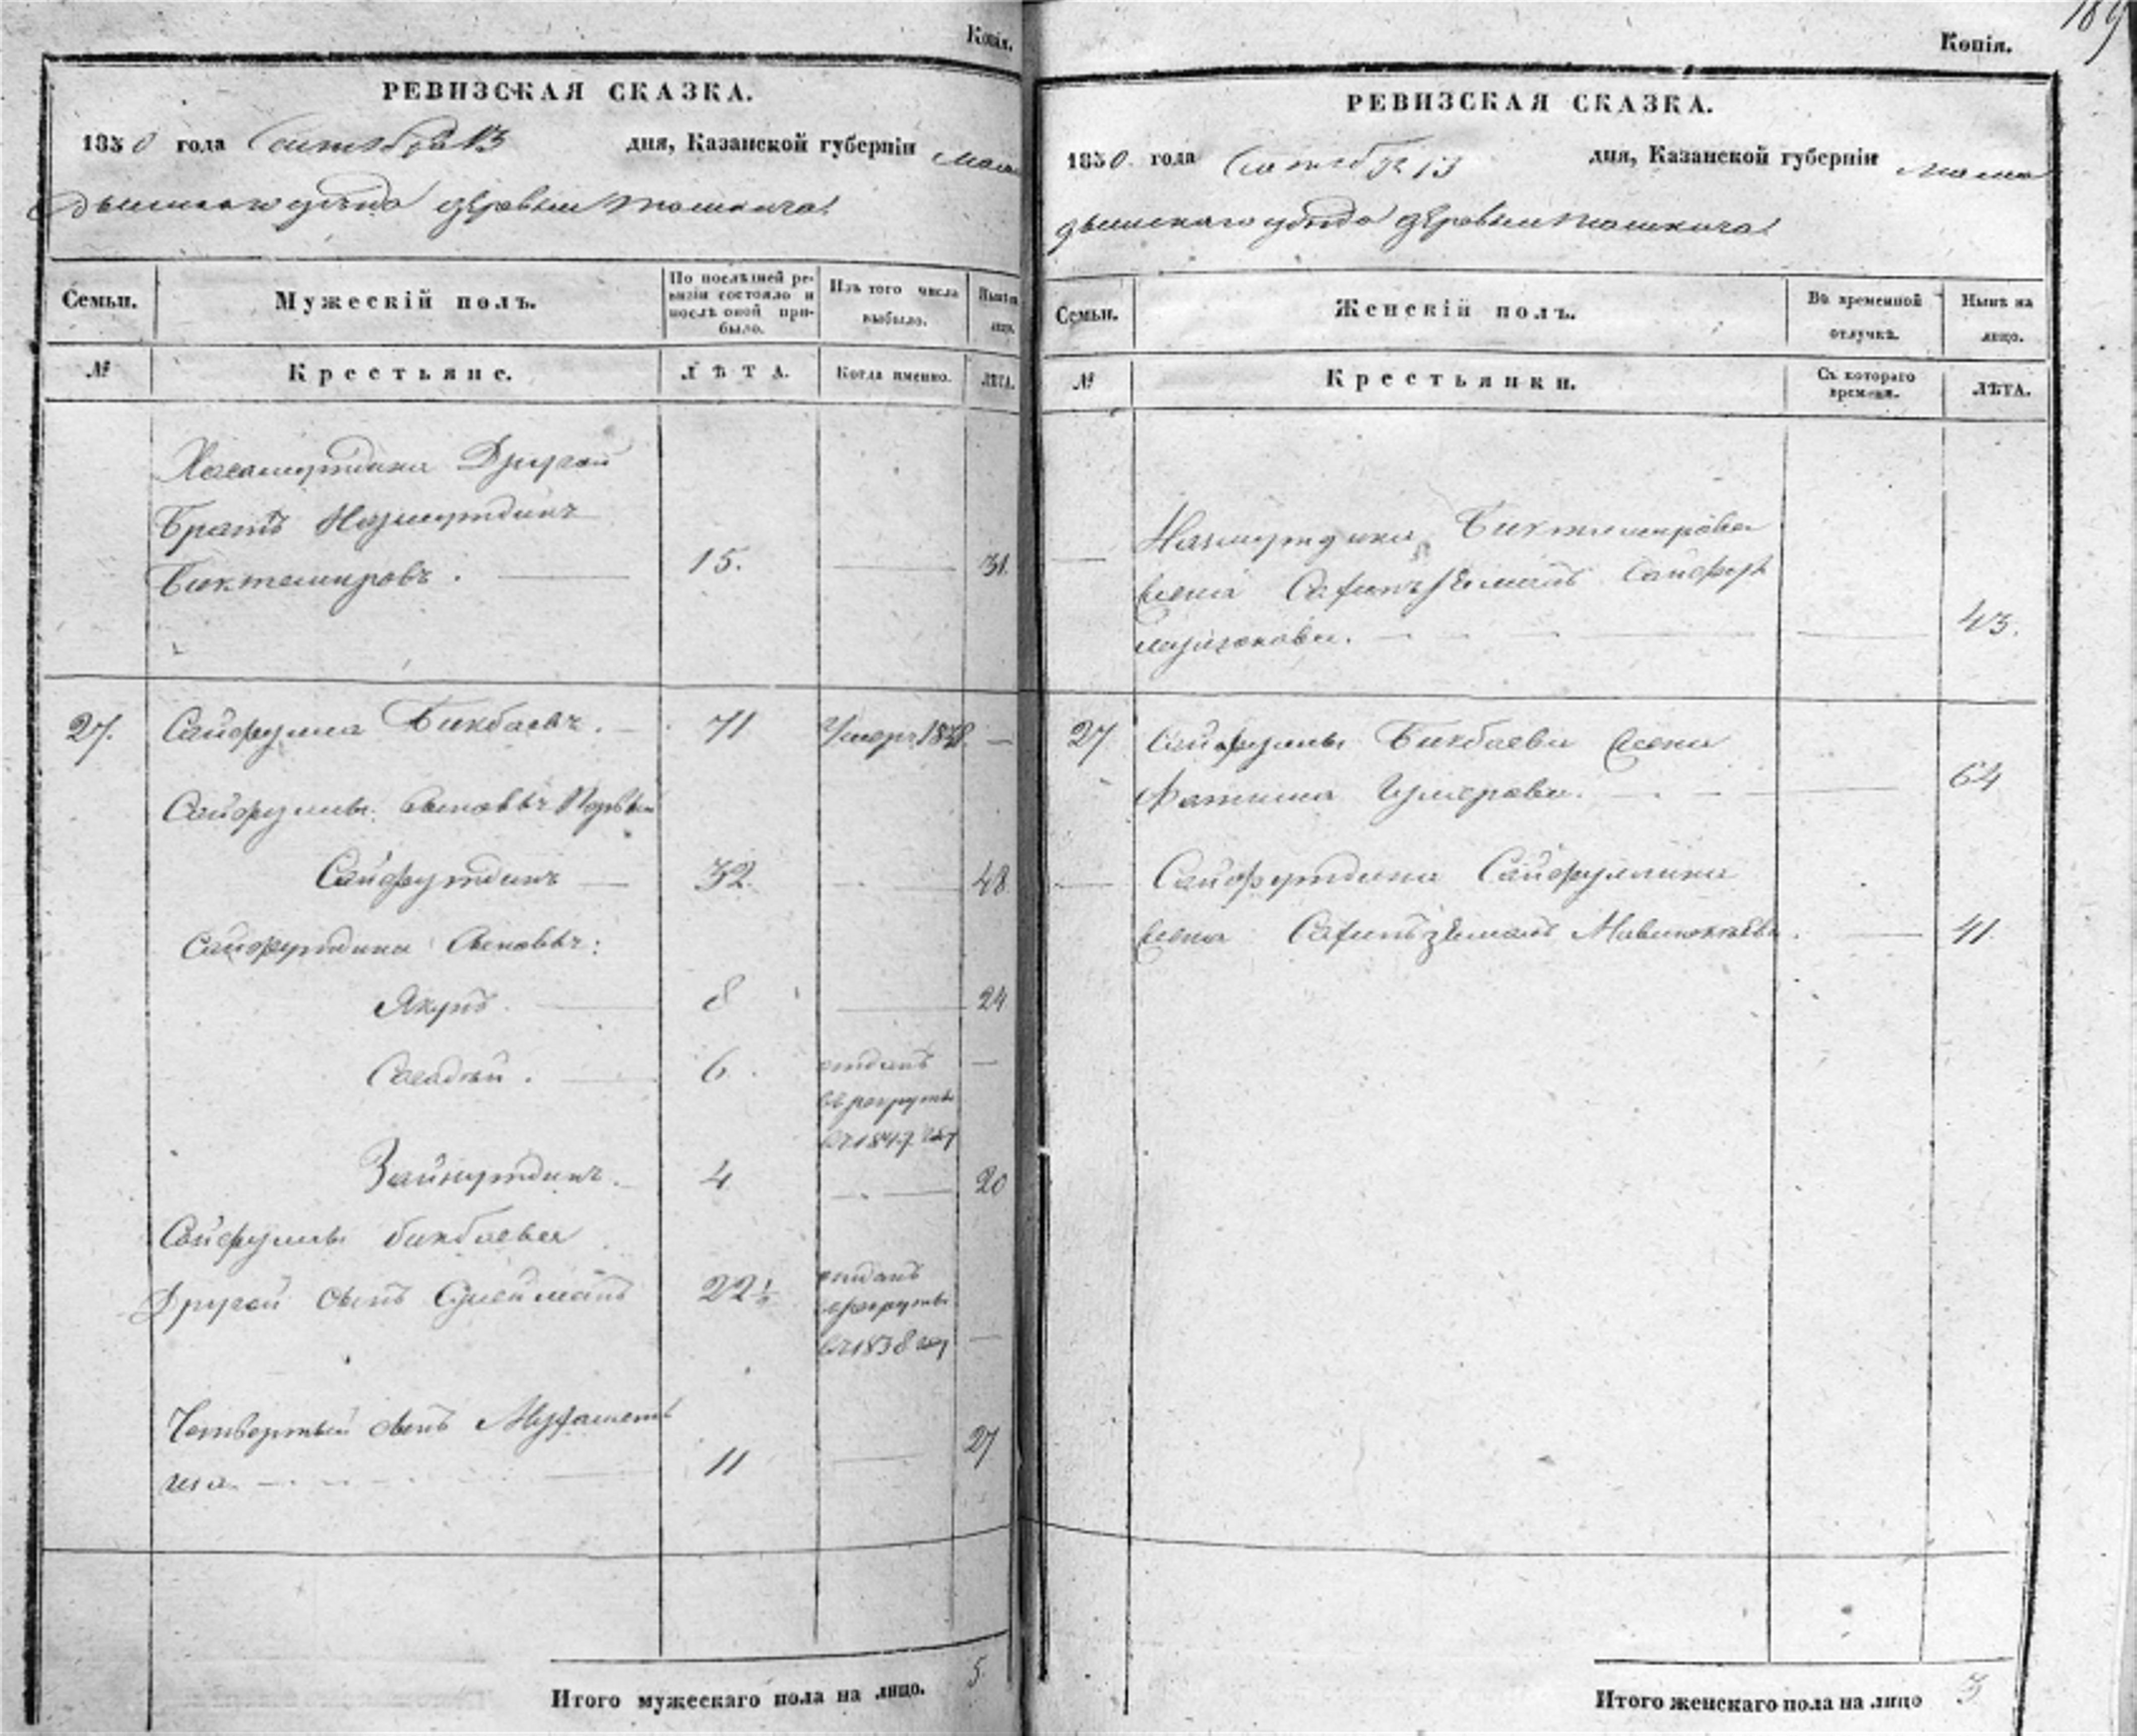 Копія.
РЕВИЗСКАЯ СКАЗКА.
1850 года Сентября 13 дня, Казанской губерніи Мама
дышскаго уѣзда деревни Ташкича
Семьи. Мужескій полъ. По послѣдней ре-
визіи состояло и
послѣ оной при-
было. Изъ того числа
выбыло. Нынѣ на
лицо.
№ Крестьяне. ЛѢТА. Когда именно. ЛѢТА.
Другой
Братъ
Биктемировъ. 15. 31.
27. Сайфулла Бикбаевъ. 71 Умеръ —
Сайфуллы сыновья Первый
Сайфутдинъ 32. 48
Сайфутдина сыновья:
Якупъ 8 24
6. отданъ —
въ рекруты
въ 1847 году
Зайнутдинъ. 4 20
Сайфуллы Бикбаева
Другой сынъ Сулейманъ 22½ отданъ
в рекруты
въ 1838 году —
Четвертый сынъ
11 27
Итого мужескаго пола на лицо. 5.
189
Копія.
РЕВИЗСКАЯ СКАЗКА.
1850 года Сентября 13 дня, Казанской губерніи Мама
дышскаго уѣзда деревни Ташкича
Семьи. Женскій полъ. Въ временной
отлучкѣ. Нынѣ на
лицо.
№ Крестьянки. Съ котораго
времени. ЛѢТА.
Биктемирова
жена
43.
27 Сайфуллы Бикбаева жена
Фатима 64
Сайфутдина Сайфуллина
жена 41.
Итого женскаго пола на лицо 3